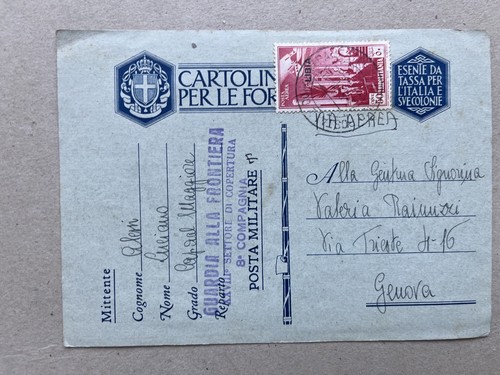 CARTOLIN
PER LE FOR
ESENTE DA
TASSA PER
L'ITALIA E
SVE COLONIE
LIBIA
VIA AEREA
Mittente
Cognome
Nome Luciano
Grado Caporal Maggiore
Reparto
GUARDIA ALLA FRONTIERA
SETTORE DI COPERTURA
8ª COMPAGNIA
POSTA MILITARE nº
Alla Gentma Signorina
Valeria
Via Trieste 4-16
Genova